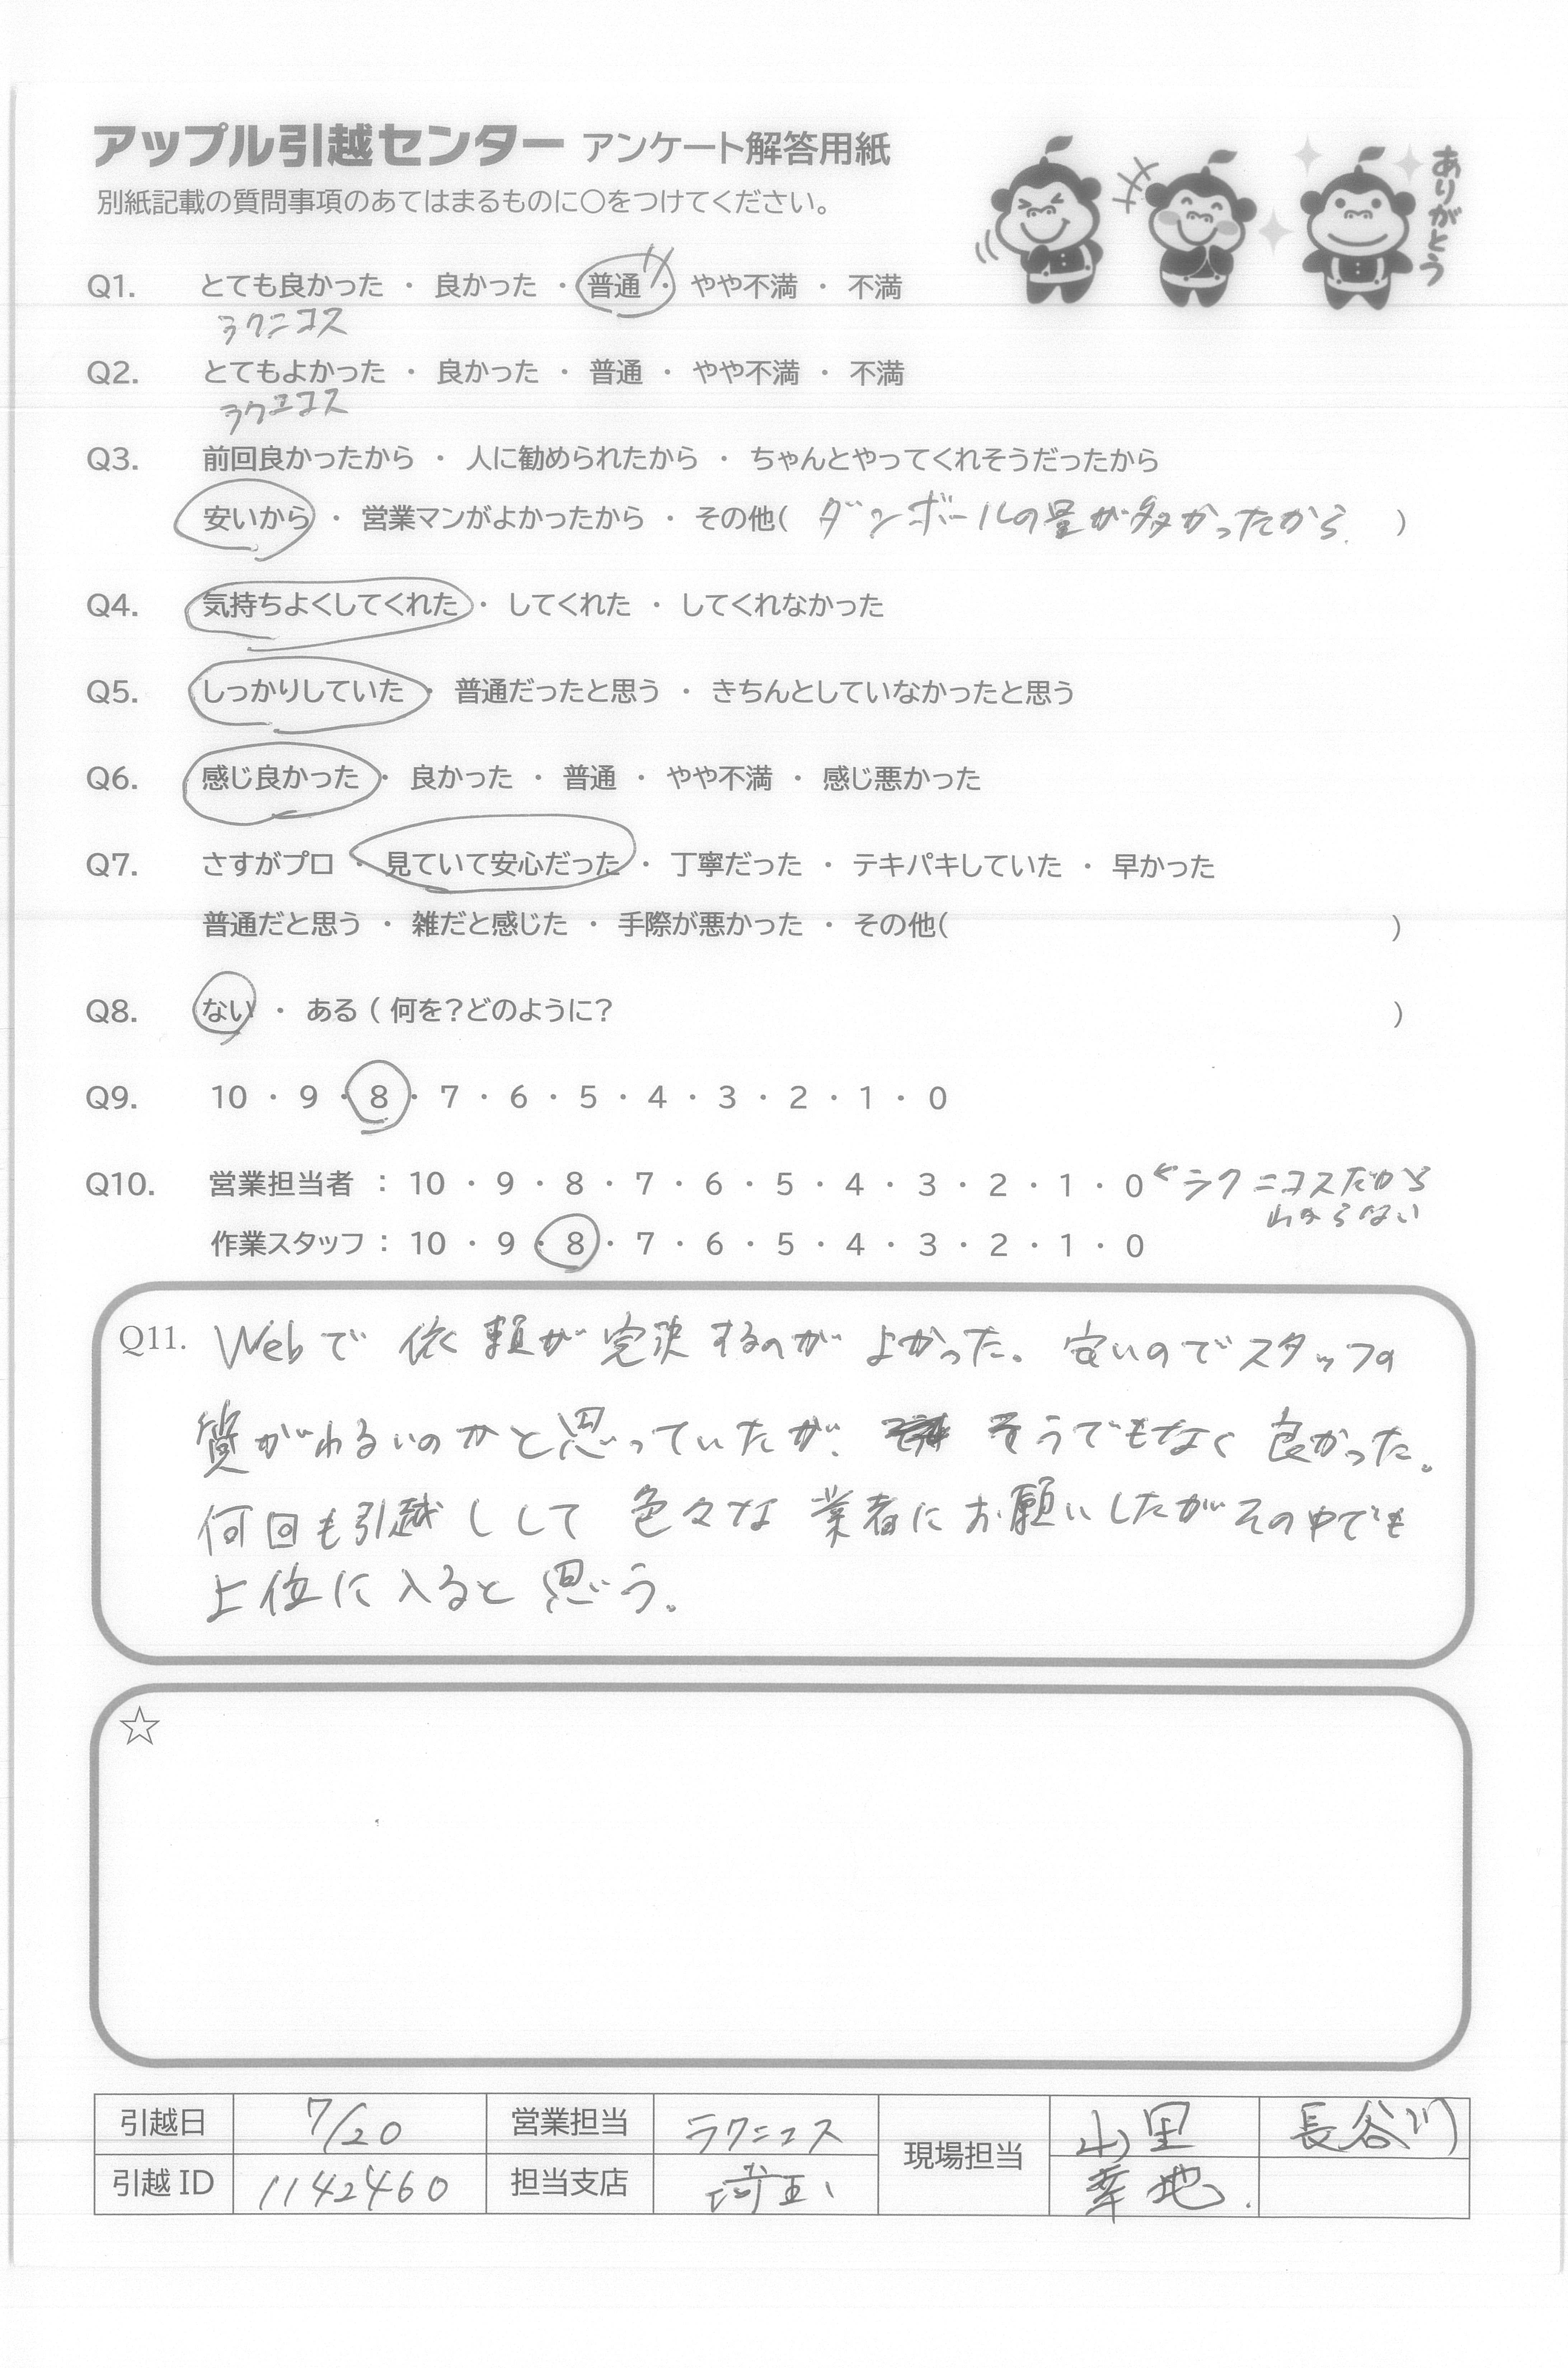 アップル引越センター アンケート解答用紙
別紙記載の質問事項のあてはまるものに〇をつけてください。
ありがとう
Q1. とても良かった ・ 良かった ・ 普通 ・ やや不満 ・ 不満
ラクニコス
Q2. とてもよかった ・ 良かった ・ 普通 ・ やや不満 ・ 不満
ラクニコス
Q3. 前回良かったから ・ 人に勧められたから ・ ちゃんとやってくれそうだったから
安いから ・ 営業マンがよかったから ・ その他( ダンボールの量が多かったから. )
Q4. 気持ちよくしてくれた ・ してくれた ・ してくれなかった
Q5. しっかりしていた ・ 普通だったと思う ・ きちんとしていなかったと思う
Q6. 感じ良かった ・ 良かった ・ 普通 ・ やや不満 ・ 感じ悪かった
Q7. さすがプロ ・ 見ていて安心だった ・ 丁寧だった ・ テキパキしていた ・ 早かった
普通だと思う ・ 雑だと感じた ・ 手際が悪かった ・ その他( )
Q8. ない ・ ある ( 何を?どのように? )
Q9. 10 ・ 9 ・ 8 ・ 7 ・ 6 ・ 5 ・ 4 ・ 3 ・ 2 ・ 1 ・ 0
Q10. 営業担当者 : 10 ・ 9 ・ 8 ・ 7 ・ 6 ・ 5 ・ 4 ・ 3 ・ 2 ・ 1 ・ 0 ← ラクニコスだから
わからない
作業スタッフ : 10 ・ 9 ・ 8 ・ 7 ・ 6 ・ 5 ・ 4 ・ 3 ・ 2 ・ 1 ・ 0
Q11. Webで依頼が完決するのがよかった。安いのでスタッフの
質がわるいのかと思っていたが、そうでもなく良かった。
何回も引越しして色々な業者にお願いしたがその中でも
上位に入ると思う。
☆
引越日 7/20 営業担当 ラクニコス 現場担当 山里 長谷川
引越 ID 1142460 担当支店 埼玉 幸地.